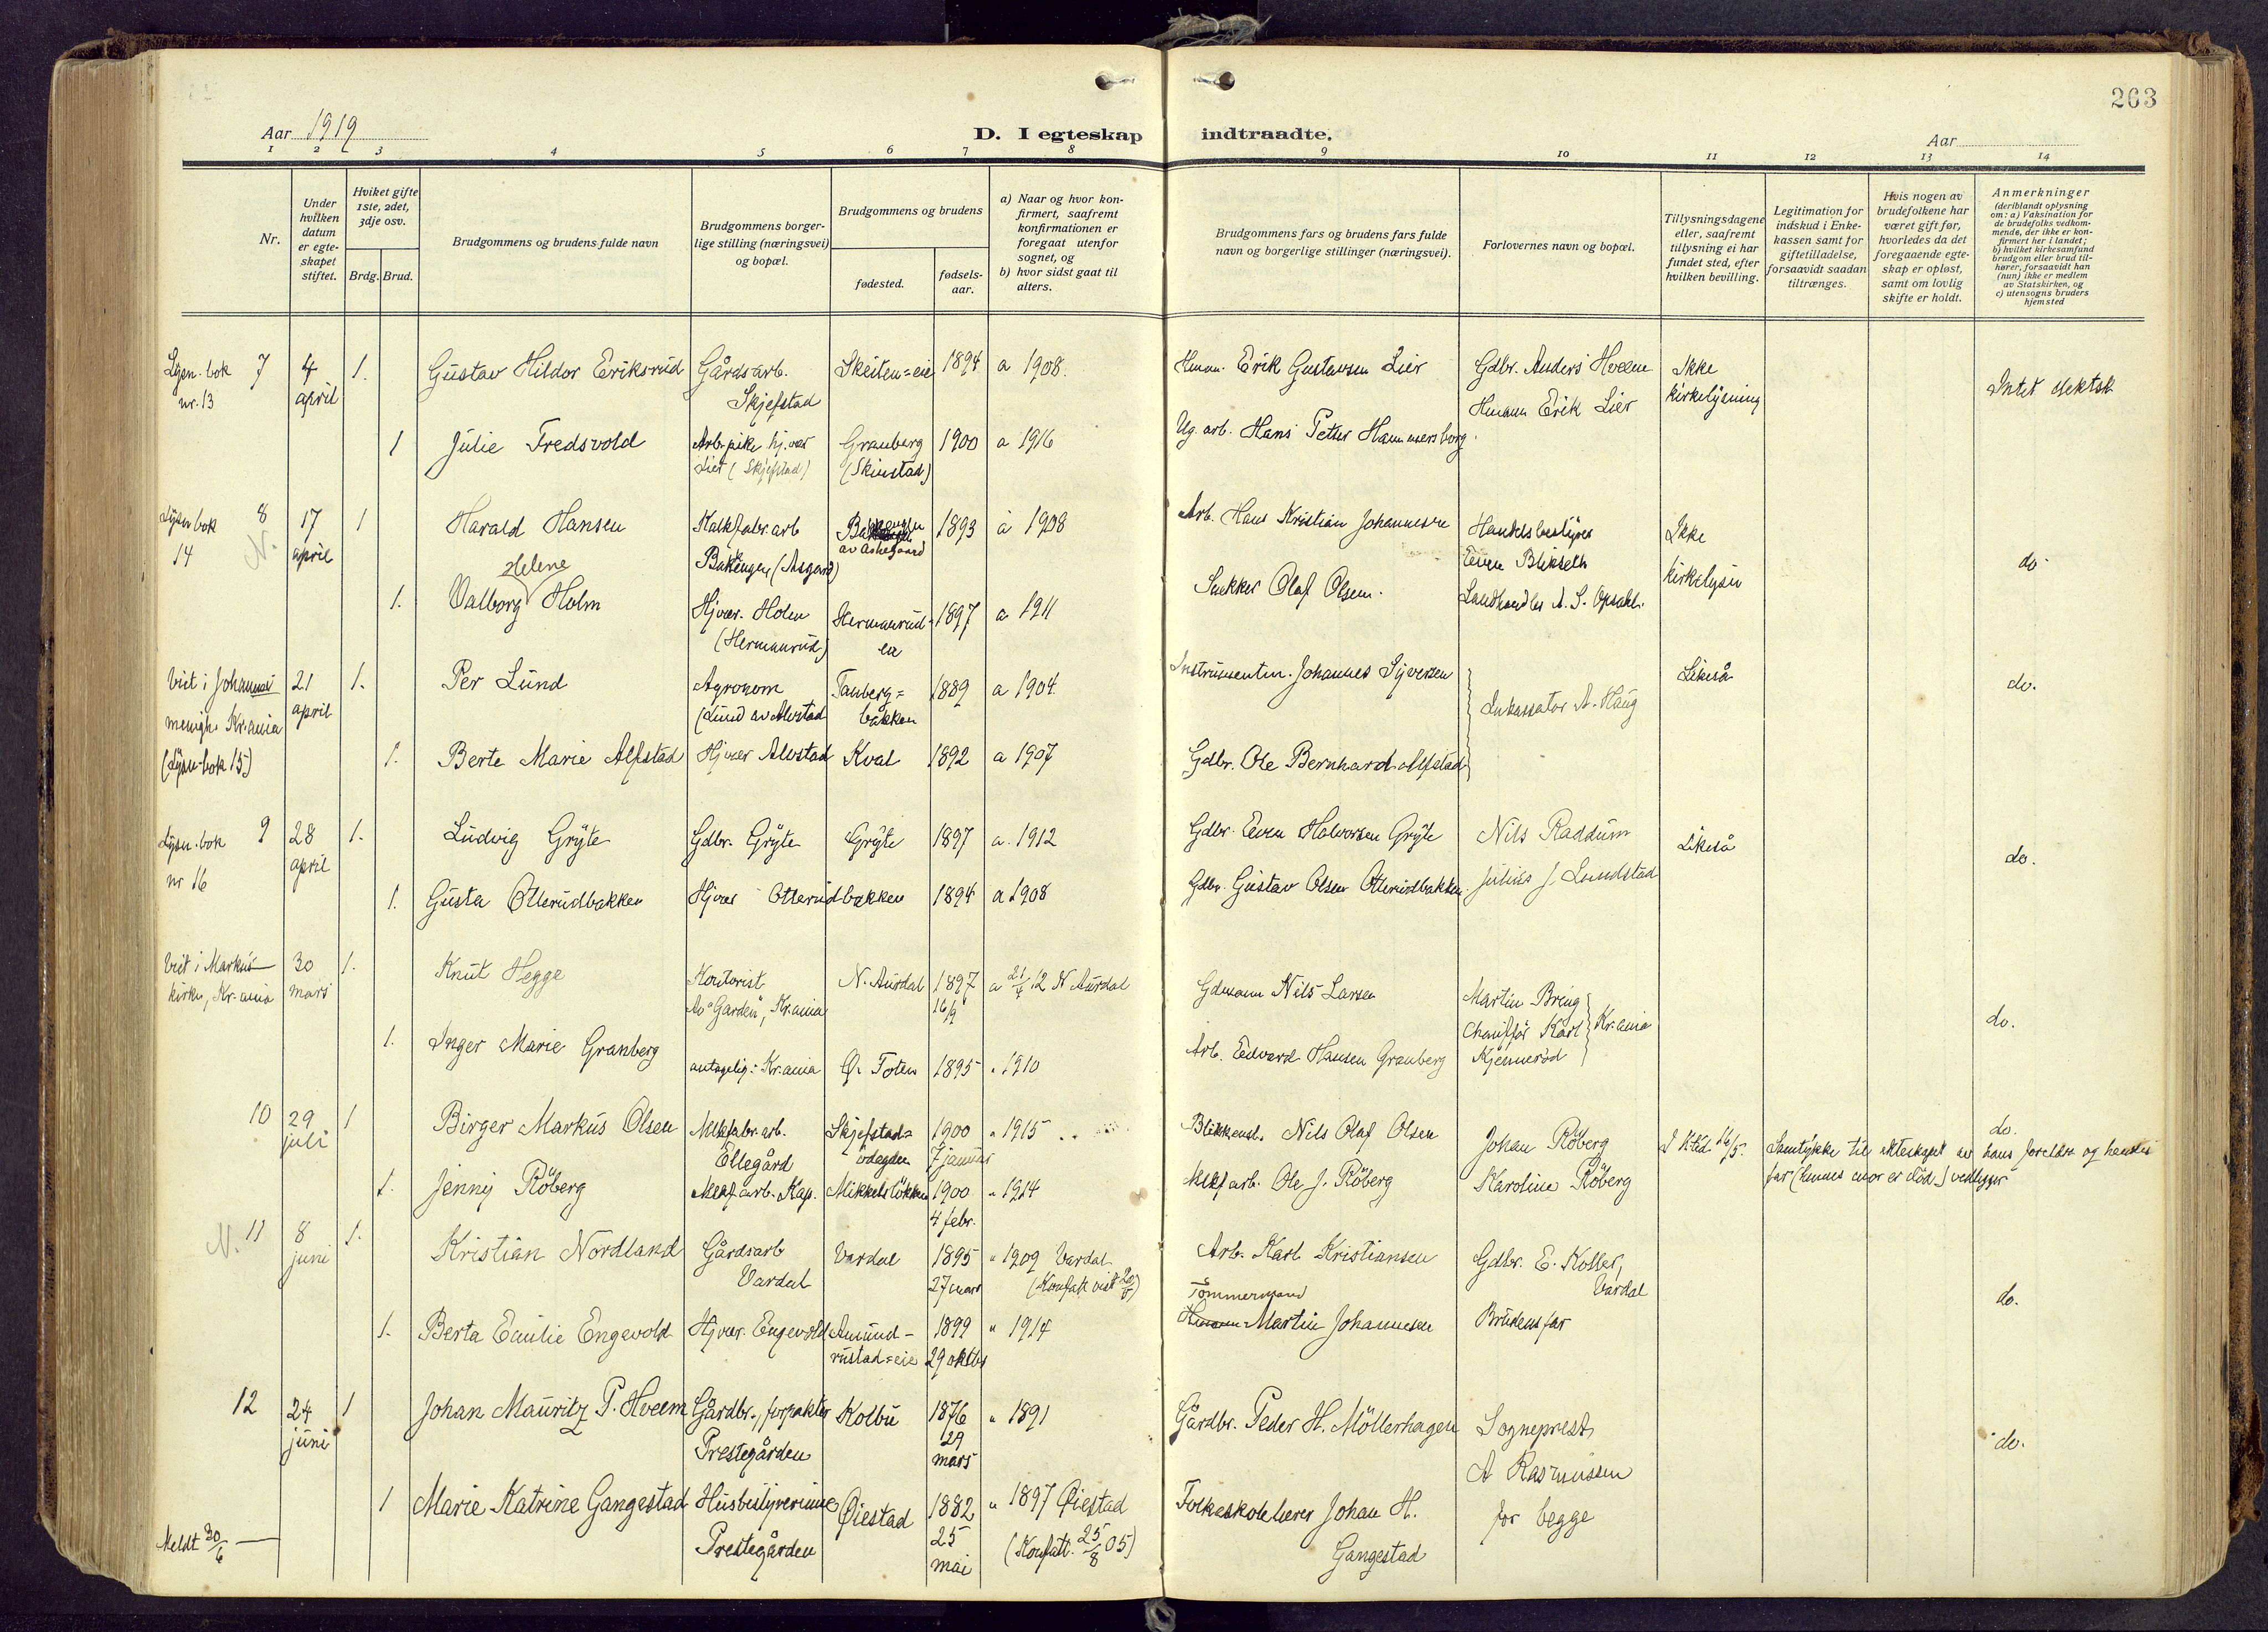 263
Aar 1919
D. I egteskap indtraadte.
Aar
1 2 3 4 5 6 7 8 9 10 11 12 13 14
Nr.
Under hvilken datum er egteskapet stiftet.
Hviket gifte 1ste, 2det, 3dje osv.
Brdg. Brud.
Brudgommens og brudens fulde navn
Brudgommens borgerlige stilling (næringsvei) og bopæl.
Brudgommens og brudens
fødested.
fødselsaar.
a) Naar og hvor konfirmert, saafremt konfirmationen er foregaat utenfor sognet, og
b) hvor sidst gaat til alters.
Brudgommens fars og brudens fars fulde navn og borgerlige stillinger (næringsvei).
Forlovernes navn og bopæl.
Tillysningsdagene eller, saafremt tillysning ei har fundet sted, efter hvilken bevilling.
Legitimation for indskud i Enkekassen samt for giftetilladelse, forsaavidt saadan tiltrænges.
Hvis nogen av brudefolkene har været gift før, hvorledes da det foregaaende egteskap er opløst, samt om lovlig skifte er holdt.
Anmerkninger
(deriblandt oplysning om: a) Vaksination for de brudefolks vedkommende, der ikke er konfirmert her i landet; b) hvilket kirkesamfund brudgom eller brud tilhører, forsaavidt han (hun) ikke er medlem av Statskirken, og c) utensogns bruders hjemsted
Lysn. bok nr. 13 7 4 april 1. Gustav Hildor Eriksrud Gårdsarb. Skjefstad Skeiten=eie 1894 a 1908. Erik Gustavsen Lier Gdbr. Anders Hveem Ikke kirkelysning
Husm. Erik Lier
1 Julie Fredsvold Arb.pike hj.vær Lier (Skjefstad) Granberg (Skinstad) 1900 a 1916 Ug. arb. Hans Petter Hammersborg.
Lysn bok 14 8 N. 17 april 1 Harald Hansen Kalkfabr. arb Bakengen (Aasgard) av Askegaard 1893 a 1908 Arb. Hans Kristian Johannesen Handelsbestyrer Even Blikseth Ikke kirkelysn do
1. Valborg Helene Holm Hjvær. Holm (Hermanrud) Hermanrud= 1897 a 1911 Snekker Olaf Olsen. Landhandler A. S. Opsahl.
Viet i Johannes menigh. Kr.ania (Lysn-bok 15) 21 april 1. Per Lund Agronom (Lund av Alvstad Tanberg=bakken 1889 a 1904. Instrumentm. Johannes Syversen Inkassator A. Haug Likeså do.
1. Berte Marie Alfstad Hjvær Alvstad Kval 1892 a 1907 Gdbr. Ole Bernhard Alfstad
Lysn. bok nr 16 9 28 april 1. Ludvig Gryte Gdbr. Gryte Gryte 1897 a 1912 Gdbr. Even Halvorsen Gryte Nils Raddum Likeså do.
1. Gusta Otterudbakken Hjvær Otterudbakken 1894 a 1908 Gdbr. Gustav Olsen Otterudbakken Julius J. Lundstad
Viet i Markus kirke, Kr.ania 30 mars 1. Knut Hegge Kontorist Av "Garden", Kr.ania N. Aurdal 1897 16/9 a 21/4 12 N Aurdal Gdmann Nils Larsen Martin Bring do.
Chauffør Karl Kjennerød Kr.ania
1. Inger Marie Granberg antagelig: Kr.ania Ø. Toten 1895 " 1910 Arb. Edvard Hansen Granberg
10 29 juli 1 Birger Markus Olsen Melkfabr. arb. Ellegård Skjefstad=ødegden 1900 7 januar " 1915 Blikkensl. Nils Olaf Olsen Johan Röberg 16/5. Samtykke til ekteskapet av hans foreldre og hendes far (hennes mor er död) vedlægges do.
1. Jenny Röberg Melkf arb. Kap. Mikkelsløkken 1900 4 febr. " 1914 Melkf arb. Ole J. Röberg Karoline Röberg
N. 11 8 juni 1. Kristian Nordland Gårdsarb Vardal Vardal 1895 27 mars " 1909 Vardal. (Konfatt vist) Arb. Karl Kristiansen Gdbr. E. Koller, Vardal
1. Berta Emilie Engevold Hjvær. Engevold Amundrustad=eie 1899 29 oktbr " 1914 Tømmermand Martin Johannesen Brudens far do.
12 24 juni 1 Johan Mauritz P. Hveem Gårdbr., forpakter Prestegården Kolbu 1876 29 mars " 1891 Gårdbr. Peder H. Möllerhagen Sogneprest A Rasmussen for begge do.
1 Marie Katrine Gangestad Husbestyrerinne Prestegården Øiestad 1882 25 mai " 1897 Øiestad (Konfatt. 25/8 05) Folkeskolelærer Johan H. Gangestad
Meldt 30/6